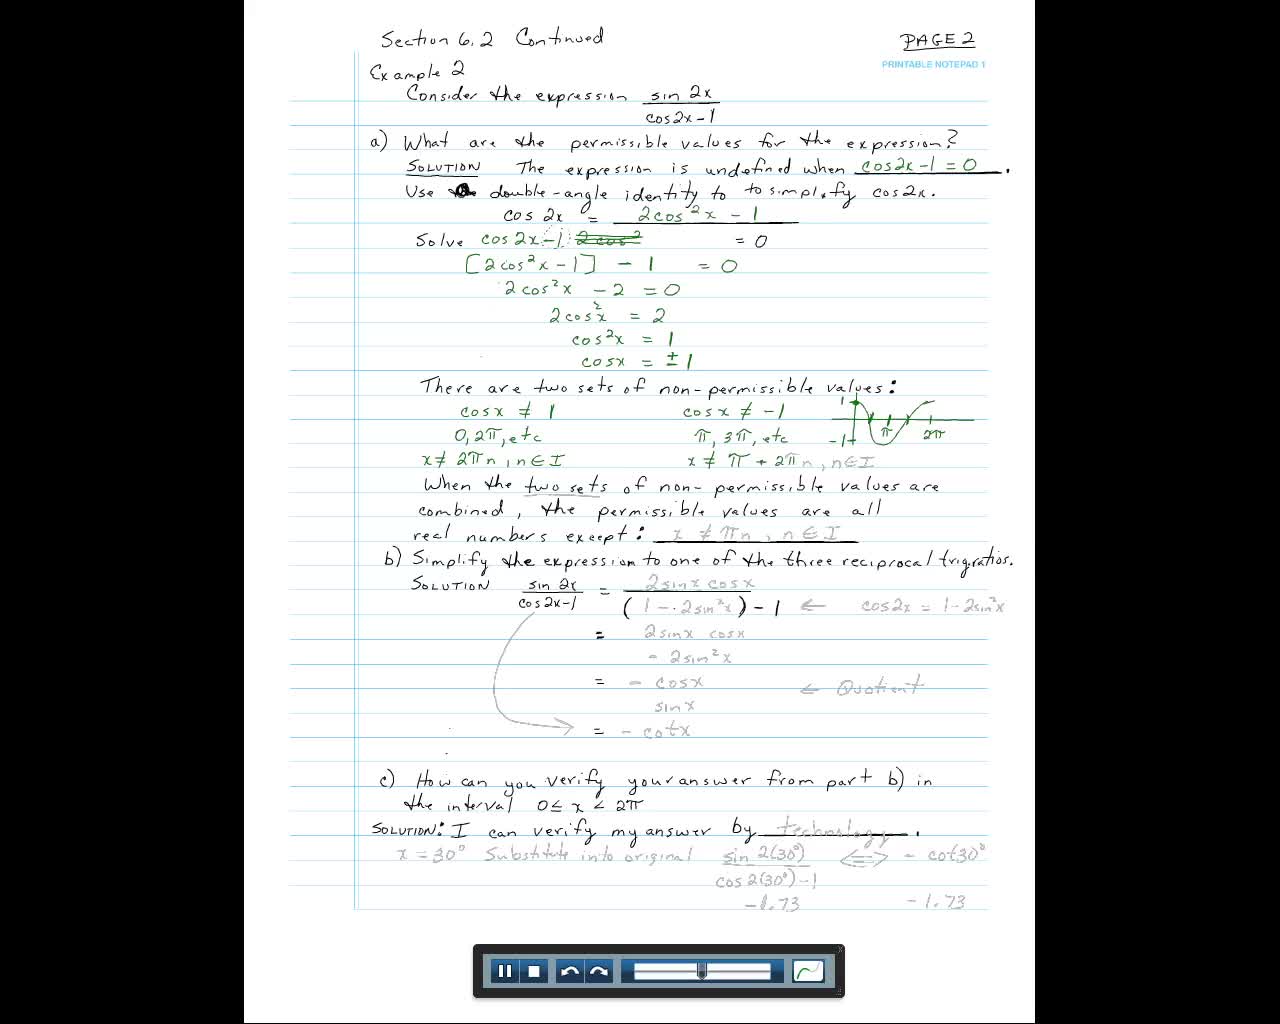 Section 6.2 Continued
PAGE 2
PRINTABLE NOTEPAD 1
Example 2
Consider the expression sin 2x / cos2x-1
a) What are the permissible values for the expression?
SOLUTION The expression is undefined when cos2x-1 = 0.
Use double-angle identity to to simplify cos2x.
cos 2x = 2cos²x - 1
Solve cos 2x - 1 = 0
[2cos²x - 1] - 1 = 0
2cos²x - 2 = 0
2cos²x = 2
cos²x = 1
cosx = ± 1
There are two sets of non-permissible values:
cosx ≠ 1 cosx ≠ -1
0, 2π, etc π, 3π, etc
x ≠ 2πn, n∈I x ≠ π + 2πn, n∈I
1
-1
π 2π
When the two sets of non-permissible values are
combined, the permissible values are all
real numbers except: x ≠ πn, n∈I
b) Simplify the expression to one of the three reciprocal trig ratios.
SOLUTION sin 2x / cos2x-1 = 2sinx cosx / (1 - 2sin²x) - 1 ← cos2x = 1-2sin²x
= 2sinx cosx
- 2sin²x
= - cosx ← Quotient
sinx
= - cotx
c) How can you verify your answer from part b) in
the interval 0 ≤ x < 2π
SOLUTION: I can verify my answer by technology.
x = 30° Substitute into original sin 2(30°) / cos 2(30°)-1 ⟺ - cot30°
-1.73 -1.73